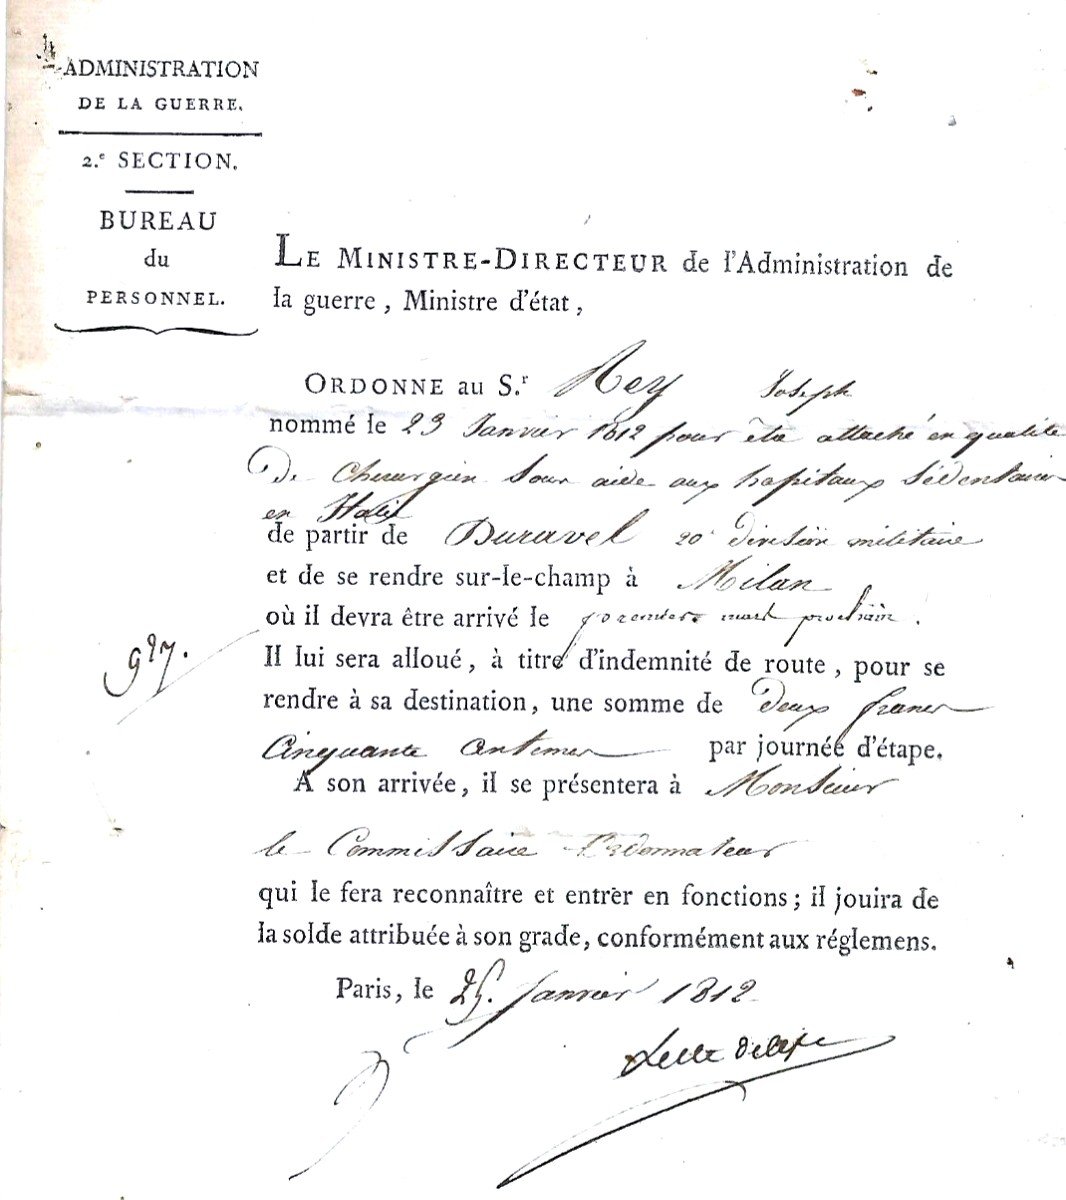 ADMINISTRATION
DE LA GUERRE.
2.e SECTION.
BUREAU
du
PERSONNEL.
LE MINISTRE-DIRECTEUR de l'Administration de
la guerre, Ministre d'état,
ORDONNE au S.r Rey Joseph
nommé le 23 Janvier 1812 pour être attaché en qualité
De Chirurgien Sous aide aux hopitaux Sédentaires
en Italie
de partir de Duravel 20e division militaire
et de se rendre sur-le-champ à Milan
où il devra être arrivé le premier mars prochain.
927.
Il lui sera alloué, à titre d'indemnité de route, pour se
rendre à sa destination, une somme de deux francs
Cinquante Centimes par journée d'étape.
A son arrivée, il se présentera à Monsieur
le Commissaire Ordonnateur
qui le fera reconnaître et entrer en fonctions; il jouira de
la solde attribuée à son grade, conformément aux réglemens.
Paris, le 25. Janvier 1812